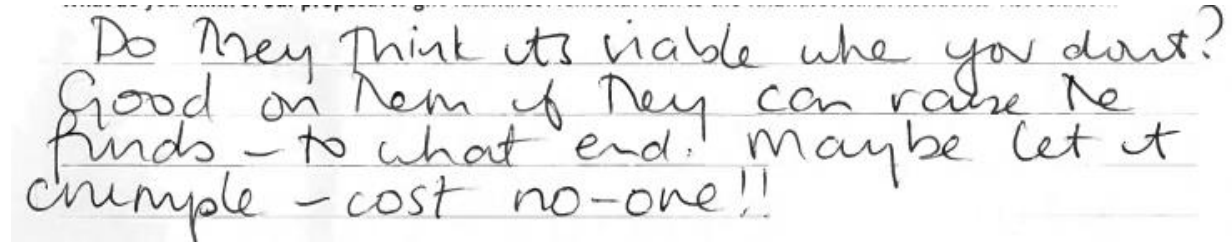 Do they think its viable whe you dont?
Good on them if they can raise the
funds - to what end! Maybe let it
crumple - cost no-one!!